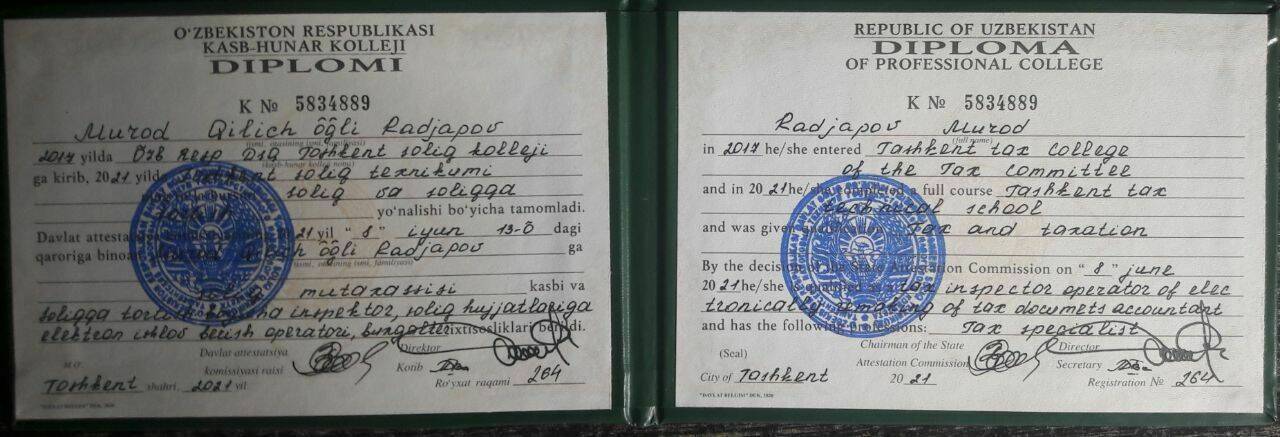 O'ZBEKISTON RESPUBLIKASI
KASB-HUNAR KOLLEJI
DIPLOMI
K № 5834889
Murod Qilich o'g'li Radjapov
(ismi, otasining ismi, familiyasi)
2017 yilda Özb Resp DSQ Toshkent soliq kolleji
(kasb-hunar kolleji nomi)
ga kirib, 2021 yilda Toshkent soliq texnikumi
soliq va soliqqa
yo'nalishi bo'yicha tamomladi.
Davlat 21 yil "8" iyun 13-Õ dagi
qaroriga binoan Murod Qilich o'g'li Radjapov ga
(ismi, otasining ismi, familiyasi)
mutaxassisi kasbi va
soliqqa inspektor, soliq hujjatlariga
elektron ishlov berish operatori, buxgalter ixtisosliklari berildi.
M.O'.
Davlat attestatsiya
komissiyasi raisi
Direktor
Kotib
Toshkent shahri, 2021 yil
Ro'yxat raqami 264
"DAVLAT BELGISI" DUK, 2020
REPUBLIC OF UZBEKISTAN
DIPLOMA
OF PROFESSIONAL COLLEGE
K № 5834889
Radjapov Murod
(full name)
in 2017 he/she entered Tashkent tax college
of the Tax committee
and in 2021 he/she completed a full course Tashkent tax
technical school
and was given qualification Tax and taxation
By the decision of the State Attestation Commission on "8" june
2021 he/she is qualified as a tax inspector operator of elec
tronically of tax documets accountant
and has the following professions: Tax specialist
(Seal)
Chairman of the State
Attestation Commission
Director
Secretary
City of Tashkent 2021
Registration № 264
"DAVLAT BELGISI" DUK, 2020